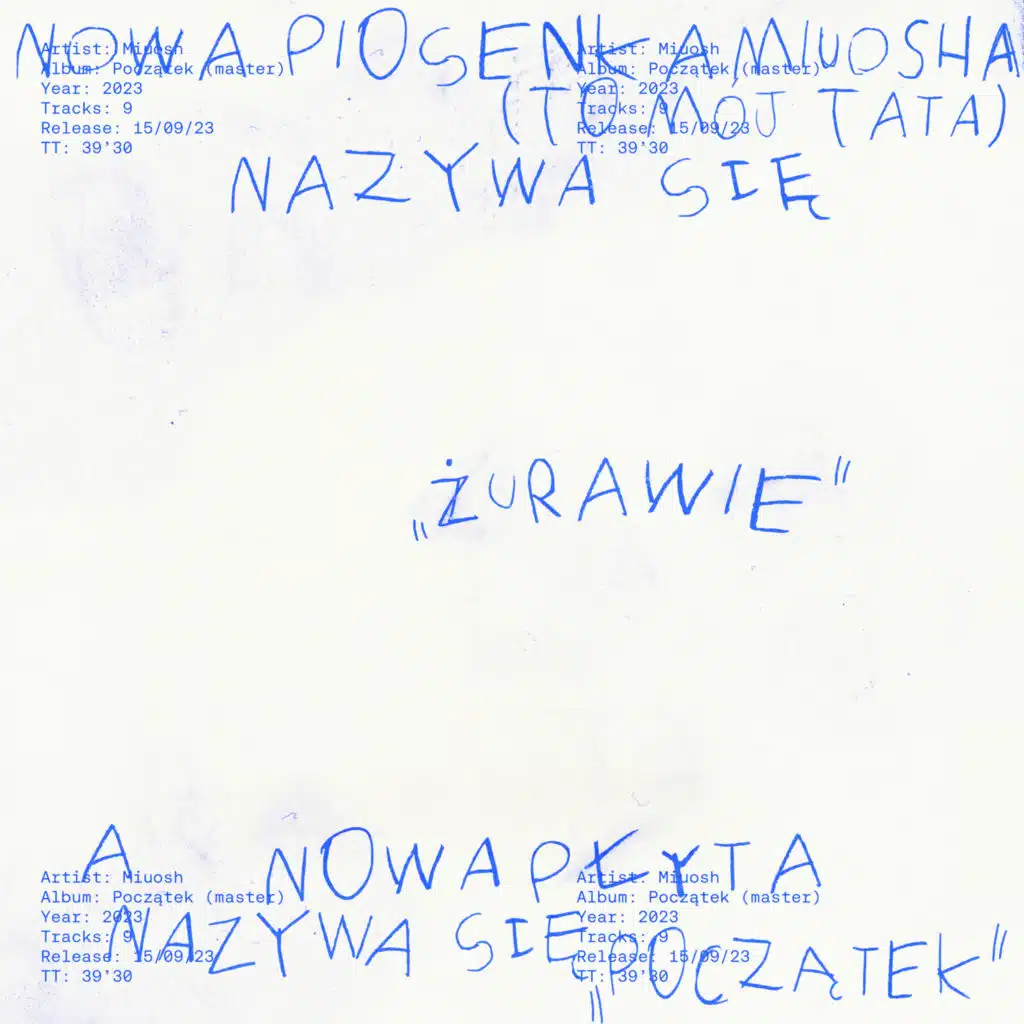 NOWA PIOSENKA MIUOSHA
Artist: Miuosh
Album: Początek (master)
Year: 2023
Tracks: 9
Release: 15/09/23
TT: 39'30
Artist: Miuosh
Album: Początek (master)
Year: 2023
Tracks: 9
Release: 15/09/23
TT: 39'30
(TO MÓJ TATA)
NAZYWA SIĘ
„ŻURAWIE"
A NOWA PŁYTA
Artist: Miuosh
Album: Początek (master)
Year: 2023
Tracks: 9
Release: 15/09/23
TT: 39'30
Artist: Miuosh
Album: Początek (master)
Year: 2023
Tracks: 9
Release: 15/09/23
TT: 39'30
NAZYWA SIĘ
„POCZĄTEK"